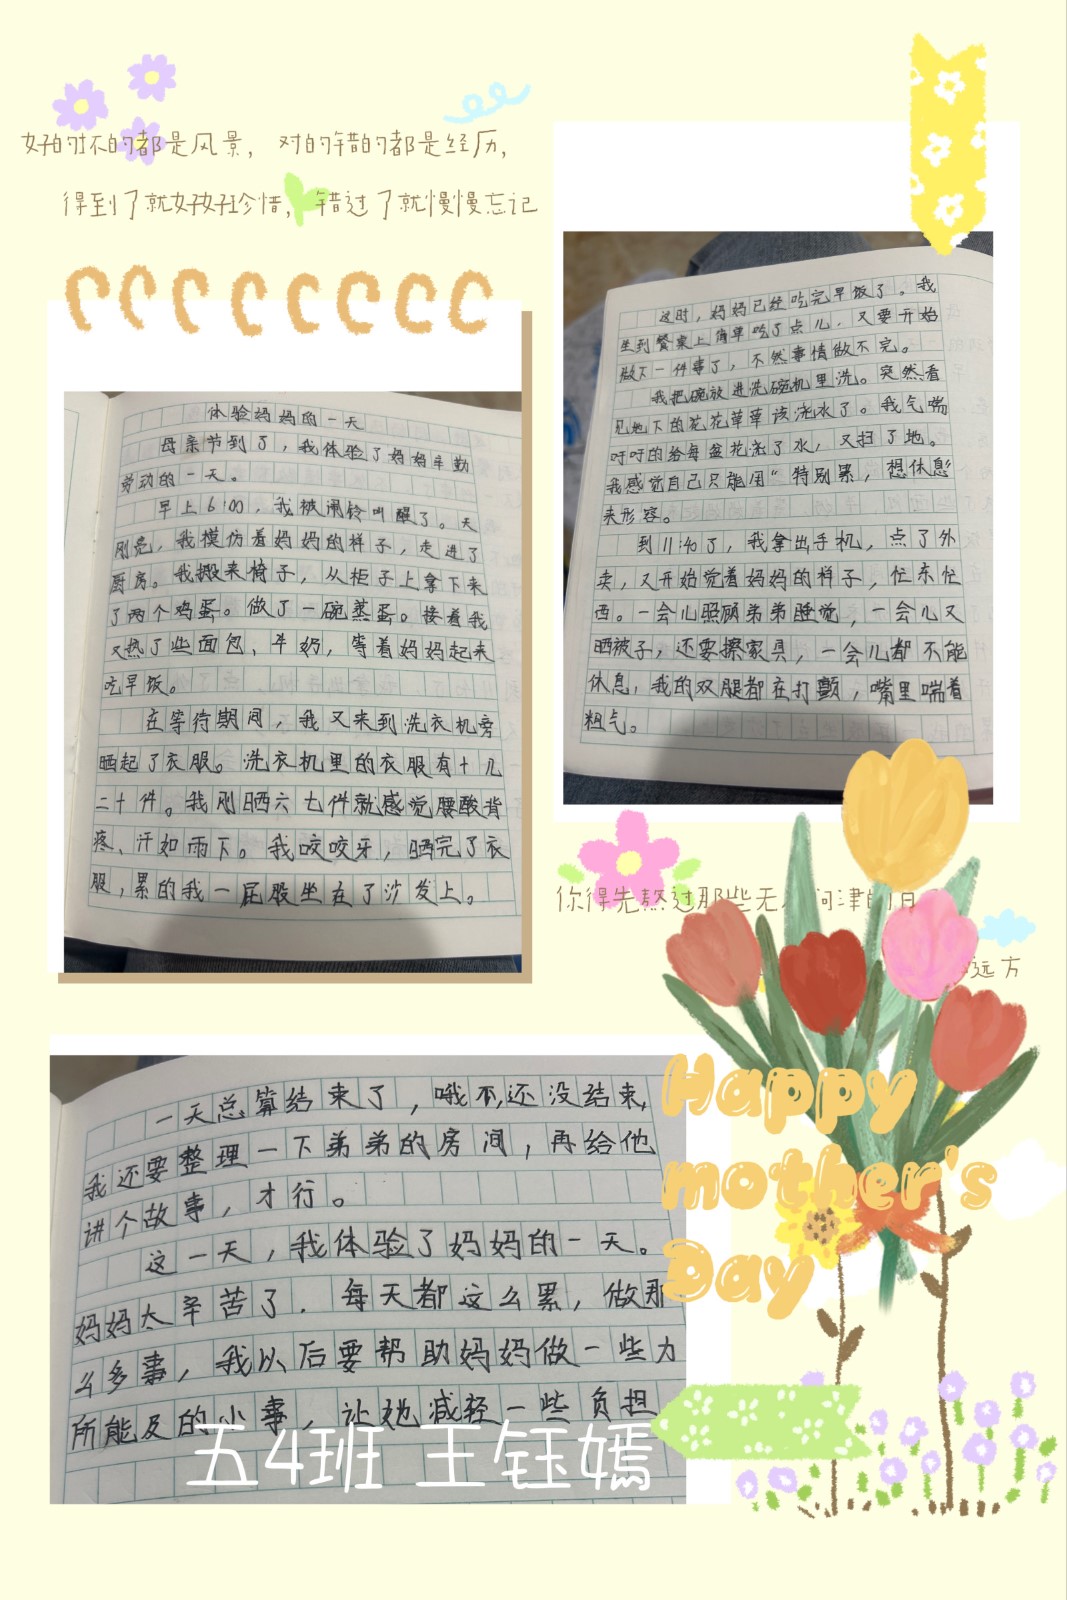 好的坏的都是风景，对的错的都是经历，
得到了就好好珍惜，错过了就慢慢忘记
体验妈妈的一天
母亲节到了，我体验了妈妈辛勤
劳动的一天。
早上6:00，我被闹铃叫醒了。天
刚亮，我模仿着妈妈的样子，走进了
厨房。我搬来椅子，从柜子上拿下来
了两个鸡蛋。做了一碗蒸蛋。接着我
又热了些面包、牛奶，等着妈妈起来
吃早饭。
在等待期间，我又来到洗衣机旁
晒起了衣服。洗衣机里的衣服有十几
二十件。我刚晒六七件就感觉腰酸背
疼、汗如雨下。我咬咬牙，晒完了衣
服，累的我一屁股坐在了沙发上。
这时，妈妈已经吃完早饭了。我
坐到餐桌上简单吃了点儿，又要开始
做下一件事了，不然事情做不完。
我把碗放进洗碗机里洗。突然看
见地下的花花草草该浇水了。我气喘
吁吁的给每盆花浇了水，又扫了地。
我感觉自己只能用“特别累，想休息
来形容。
到11:40了，我拿出手机，点了外
卖，又开始觉着妈妈的样子，忙东忙
西。一会儿照顾弟弟睡觉，一会儿又
晒被子，还要擦家具，一会儿都不能
休息，我的双腿都在打颤，嘴里喘着
粗气。
你得先熬过那些无 问津的日
远方
一天总算结束了，哦不，还没结束，
我还要整理一下弟弟的房间，再给他
讲个故事，才行。
这一天，我体验了妈妈的一天。
妈妈太辛苦了，每天都这么累，做那
么多事，我以后要帮助妈妈做一些力
所能及的小事，让她减轻一些负担
五4班 王钰嫣
Happy
mother's
Day